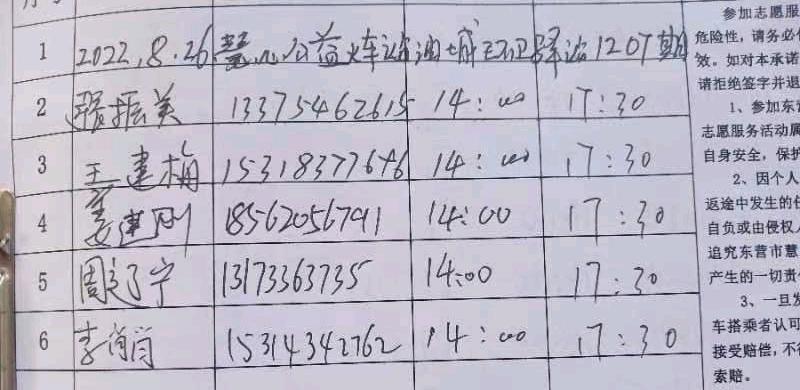 1 2022.8.26 慧心公益火车站油城环卫驿站1207期
2 张振美 13375462615 14:00 17:30
3 王建梅 15318377676 14:00 17:30
4 姜建刚 18562056791 14:00 17:30
5 周辽宁 13173363735 14:00 17:30
6 李肖肖 15314342762 14:00 17:30
参加志愿服
危险性,请务必
效。如对本承诺
请拒绝签字并退
1、参加东
志愿服务活动属
自身安全,保护
2、因个人
返途中发生的任
自负或由侵权人
追究东营市慧
产生的一切责
3、一旦发
车搭乘者认可
接受赔偿,不得
索赔。